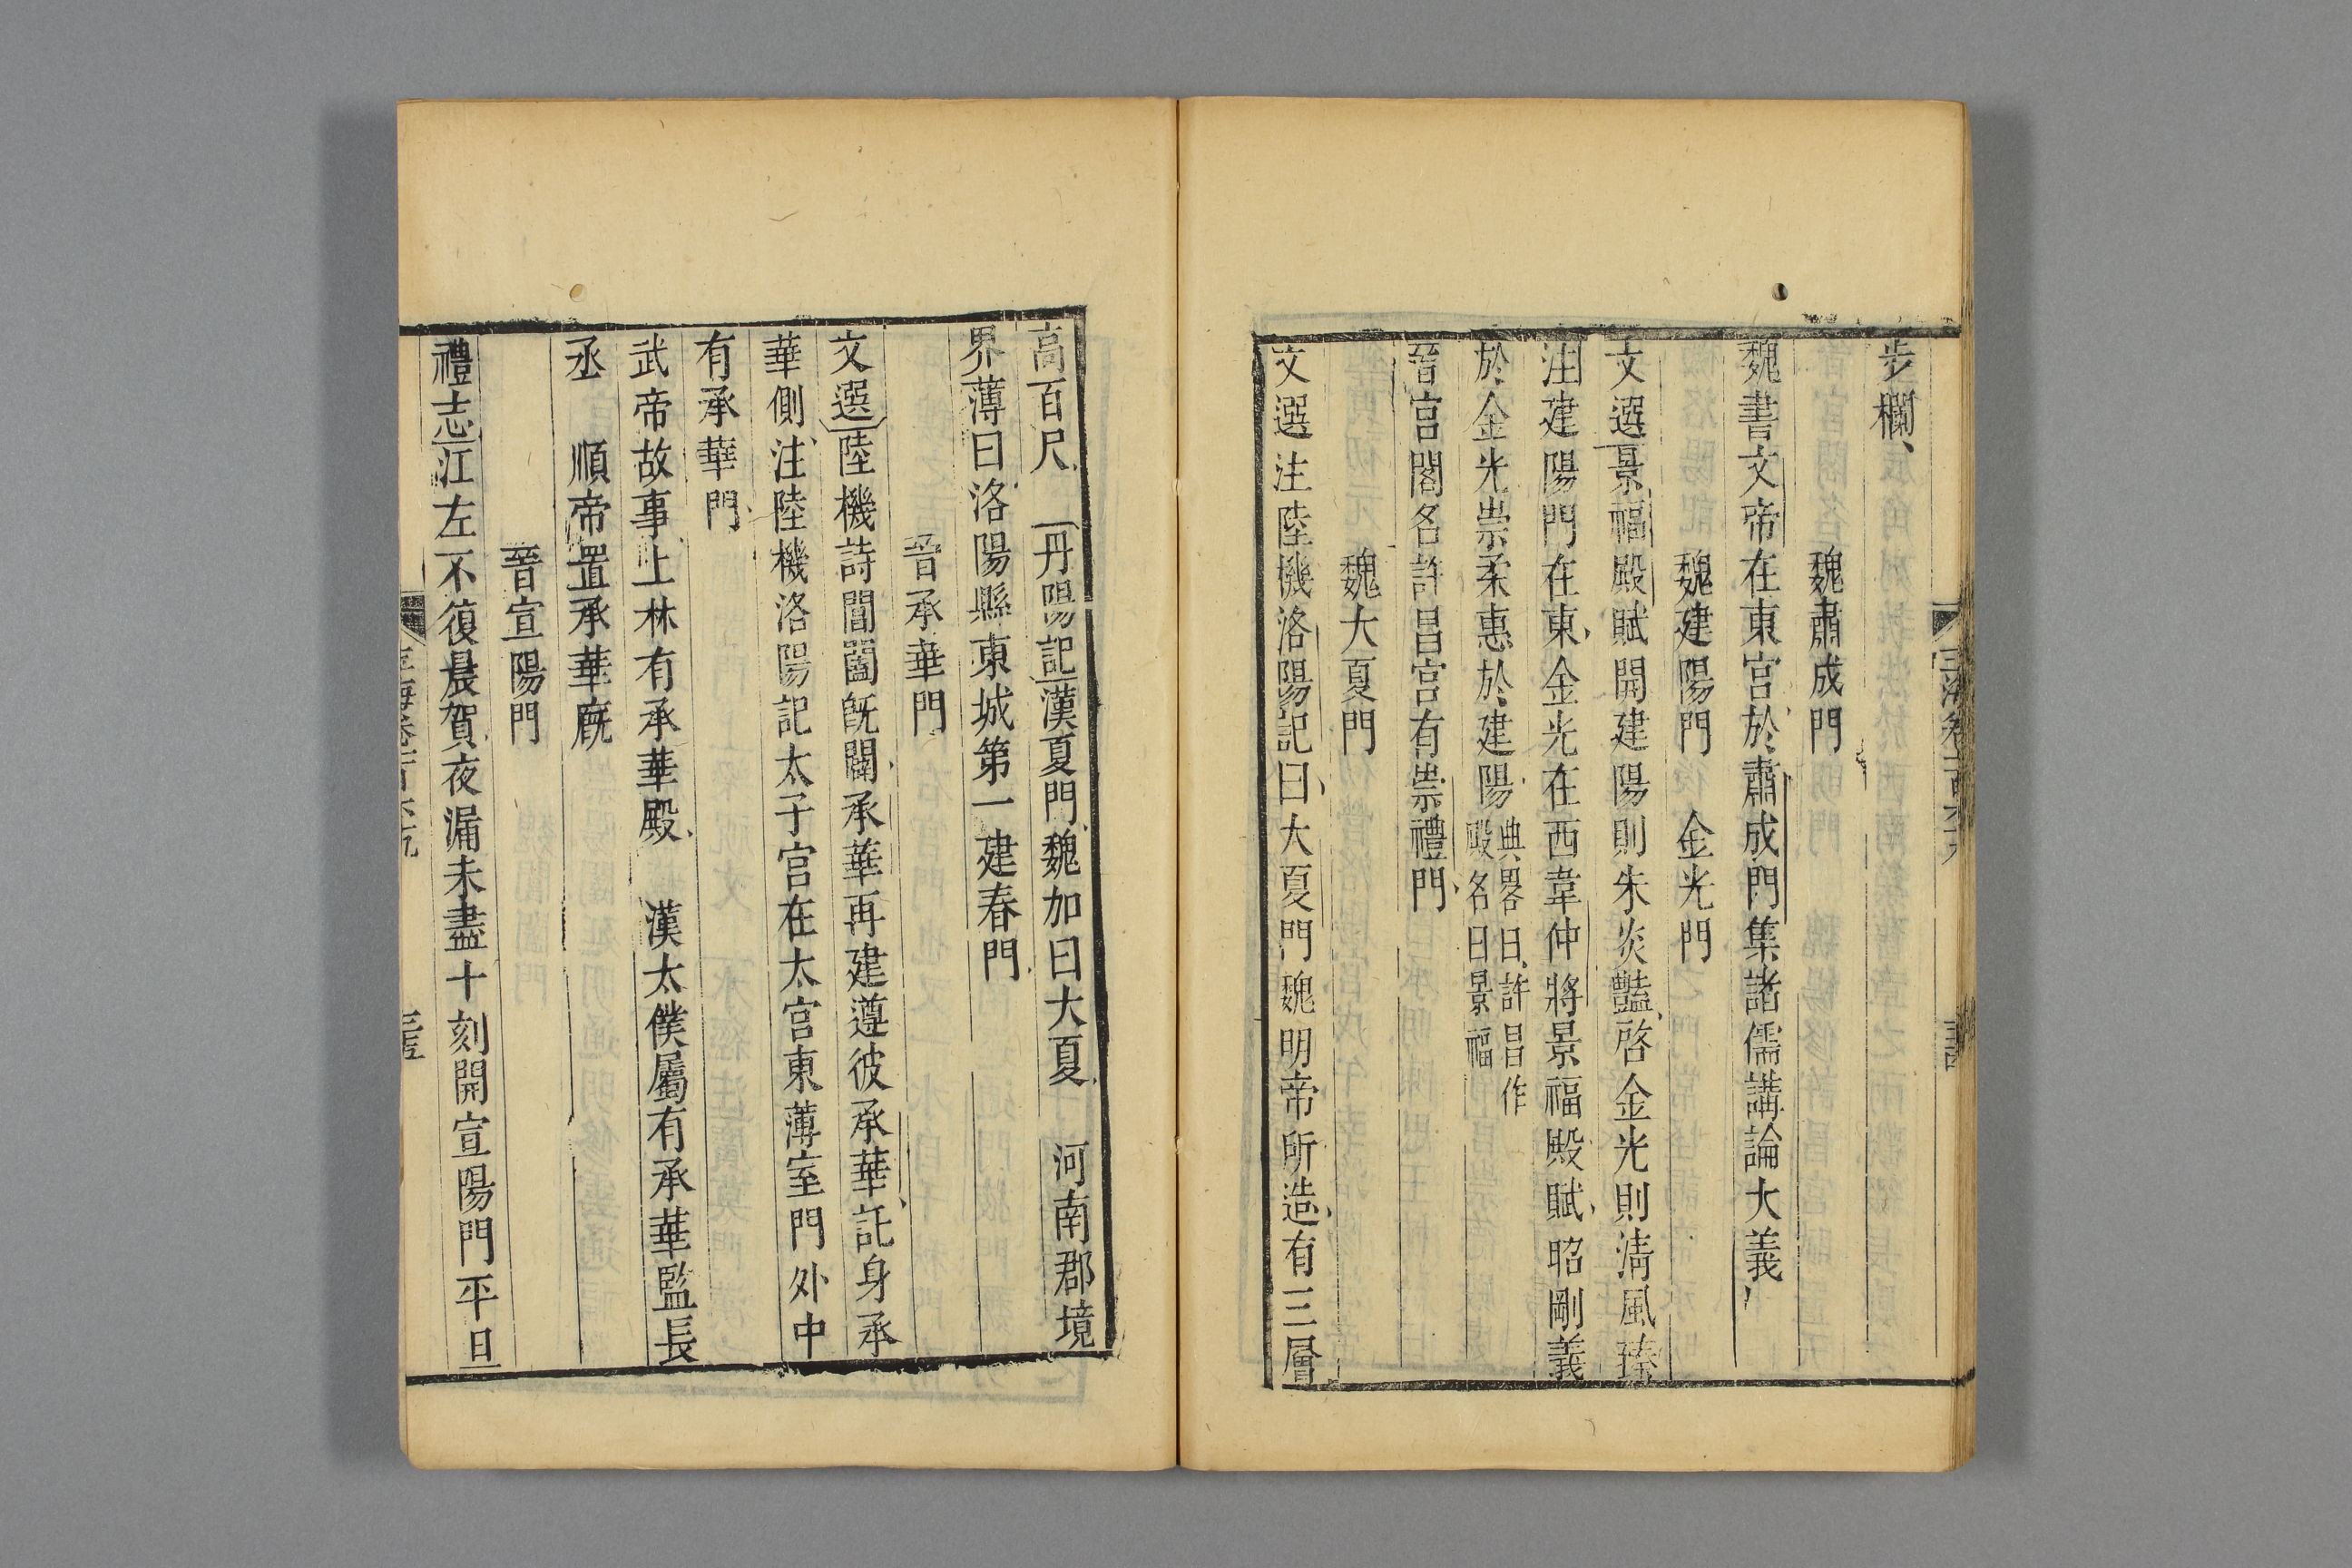 步欄
魏肅成門
魏書文帝在東宮於肅成門集諸儒講論大義
魏建陽門　金光門
文選景福殿賦開建陽則朱炎豔啓金光則淸風臻
注建陽門在東金光在西韋仲將景福殿賦昭剛義
於金光崇柔惠於建陽典畧曰許昌作殿名曰景福
晉宮閣名許昌宮有崇禮門
魏大夏門
文選注陸機洛陽記曰大夏門魏明帝所造有三層
高百尺　丹陽記漢夏門魏加曰大夏　河南郡境
界薄曰洛陽縣東城第一建春門
晉承華門
文選陸機詩閶闔旣闢承華再建遵彼承華託身承
華側注陸機洛陽記太子宮在太宮東薄室門外中
有承華門
武帝故事上林有承華殿　漢太僕屬有承華監長
丞　順帝置承華廐
晉宣陽門
禮志江左不復晨賀夜漏未盡十刻開宣陽門平旦